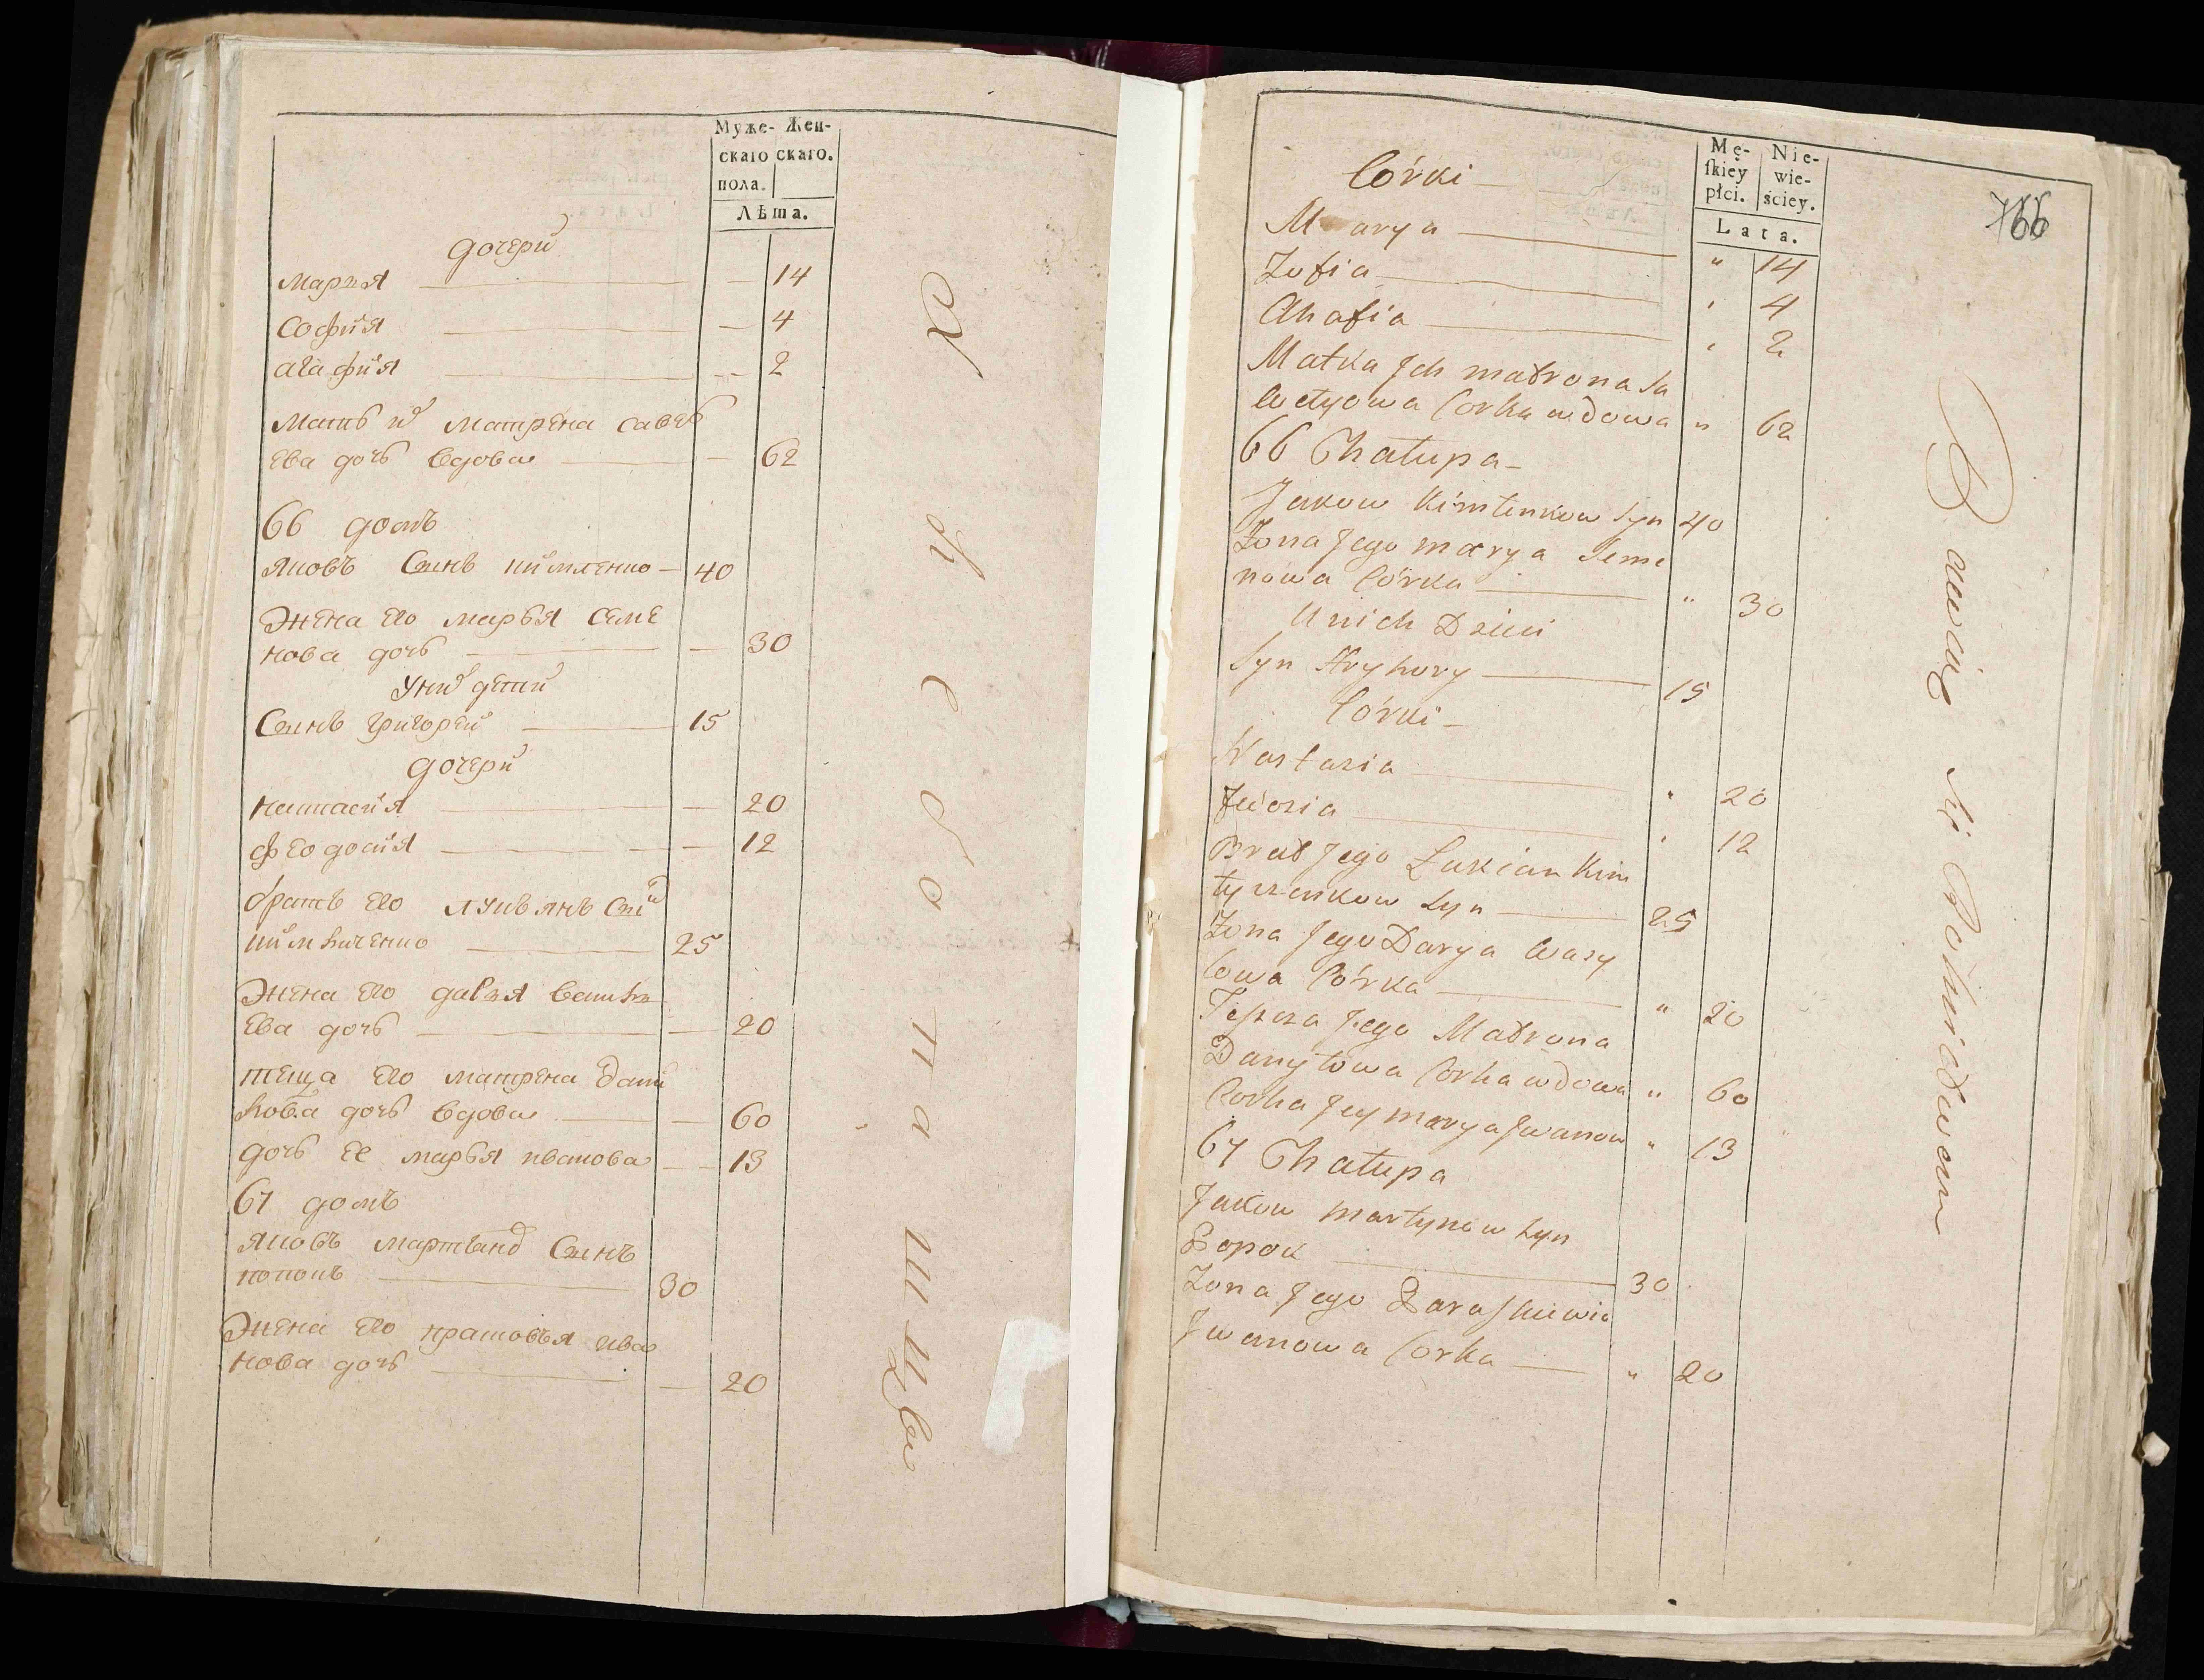 Муже- Жен-
скаго скаго.
пола.
Лѣта.
дочери
Марья 14
София — 4
агафия — 2
Мать их матрена савѣ
ева дочь вдова — 62
66 домъ
яковъ Сынъ кимленко — 40
Жена его марья семе
нова дочь — 30
у них дети
Сынъ григорей 15
дочери
настасия — 20
феодосия — 12
братъ его лукьянъ
25
Жена его дарья
ева дочь — 20
теща его матрена дани
лова дочь вдова — 60
дочь ее марья иванова — 13
67 домъ
яковъ мартынов Сынъ
попокъ 30
Жена его прасковья ива
нова дочь — 20
Mę- Nie-
ſkiey wie-
płci. ściey.
Lata.
766
Córki
Marya " 14
Zofia " 4
Ahafia " 2
Matka Jch matrona Sa
wetyowa Corka wdowa " 62
66 Chałupa
Jakow Kimlenkow Syn 40
Zona Jego marya Seme
nowa Córka " 30
U nich Dzieci
Syn Hryhory 15
Córki
Nastasia " 20
Fedosia " 12
Brat Jego Łukian Kim
Syn 25
Zona Jego Darya Wasy
lowa Córka " 20
Teszcza Jego Matrona
Danyłowa Corka wdowa " 60
Corka Jey marya Jwanow " 13
67 Chałupa
Jakow martynow Syn
Popok 30
Zona Jego Paraſkiewia
Jwanowa Corka " 20